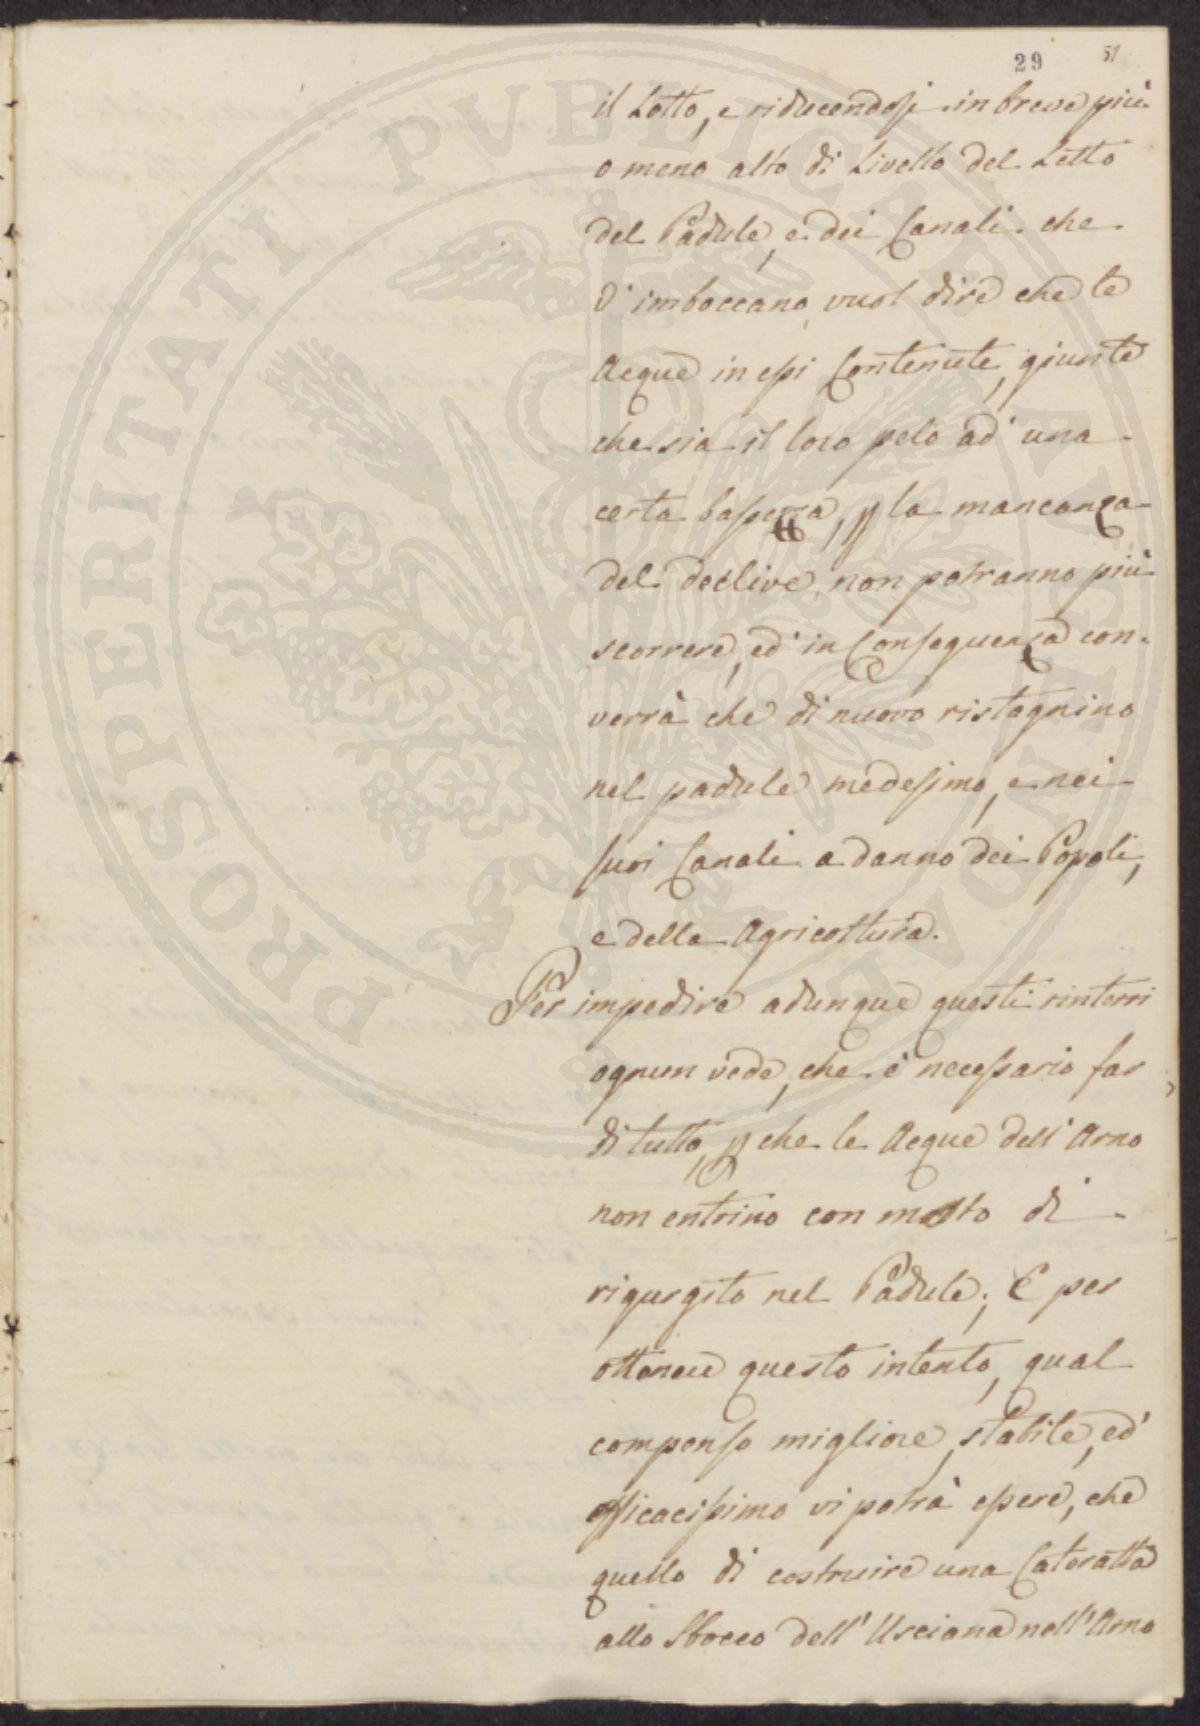 29 51
il Letto, e riducendosi in breve più
o meno alto di Livello del Letto
del Padule, e dei Canali che
v' imboccano, vuol dire che le
Acque in essi Contenute, giunte
che sia il loro pelo ad' una
certa bassezza, p la mancanza
del declive, non potranno più
scorrere, ed' in Conseguenza con-
verrà che di nuovo ristagnino
nel padule medesimo, e nei
suoi Canali a danno dei Popoli,
e della Agricoltura.
Per impedire adunque questi rinterri
ognun vede, che è necessario far
di tutto, p che le Acque dell' Arno
non entrino con molto di
rigurgito nel Padule; E per
ottenere questo intento, qual
compenso migliore, stabile, ed'
efficacissimo vi potrà essere, che
quello di costruire una Cateratta
allo Sbocco dell' Usciana nell' Arno
PROSPERITATI PVBLICAE AVGENDAE